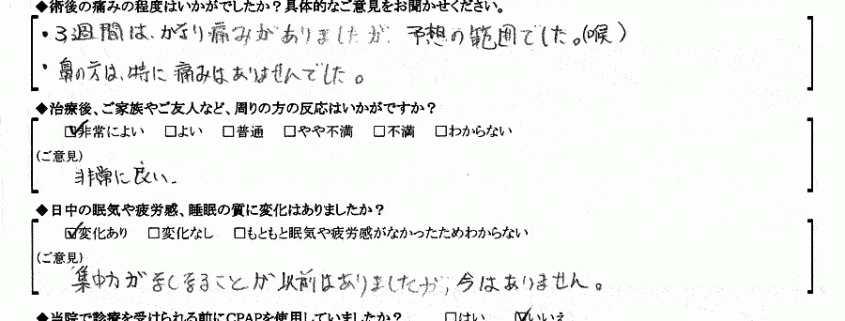 ◆術後の痛みの程度はいかがでしたか？具体的なご意見をお聞かせください。
・3週間は、かなり痛みがありましたが、予想の範囲でした。(喉)
・鼻の方は、特に痛みはありませんでした。
◆治療後、ご家族やご友人など、周りの方の反応はいかがですか？
☑非常によい □よい □普通 □やや不満 □不満 □わからない
(ご意見)
非常に良い。
◆日中の眠気や疲労感、睡眠の質に変化はありましたか？
☑変化あり □変化なし □もともと眠気や疲労感がなかったためわからない
(ご意見)
集中力が ることが以前はありましたが、今はありません。
◆当院で診療を受けられる前にCPAPを使用していましたか？ □はい ☑いいえ